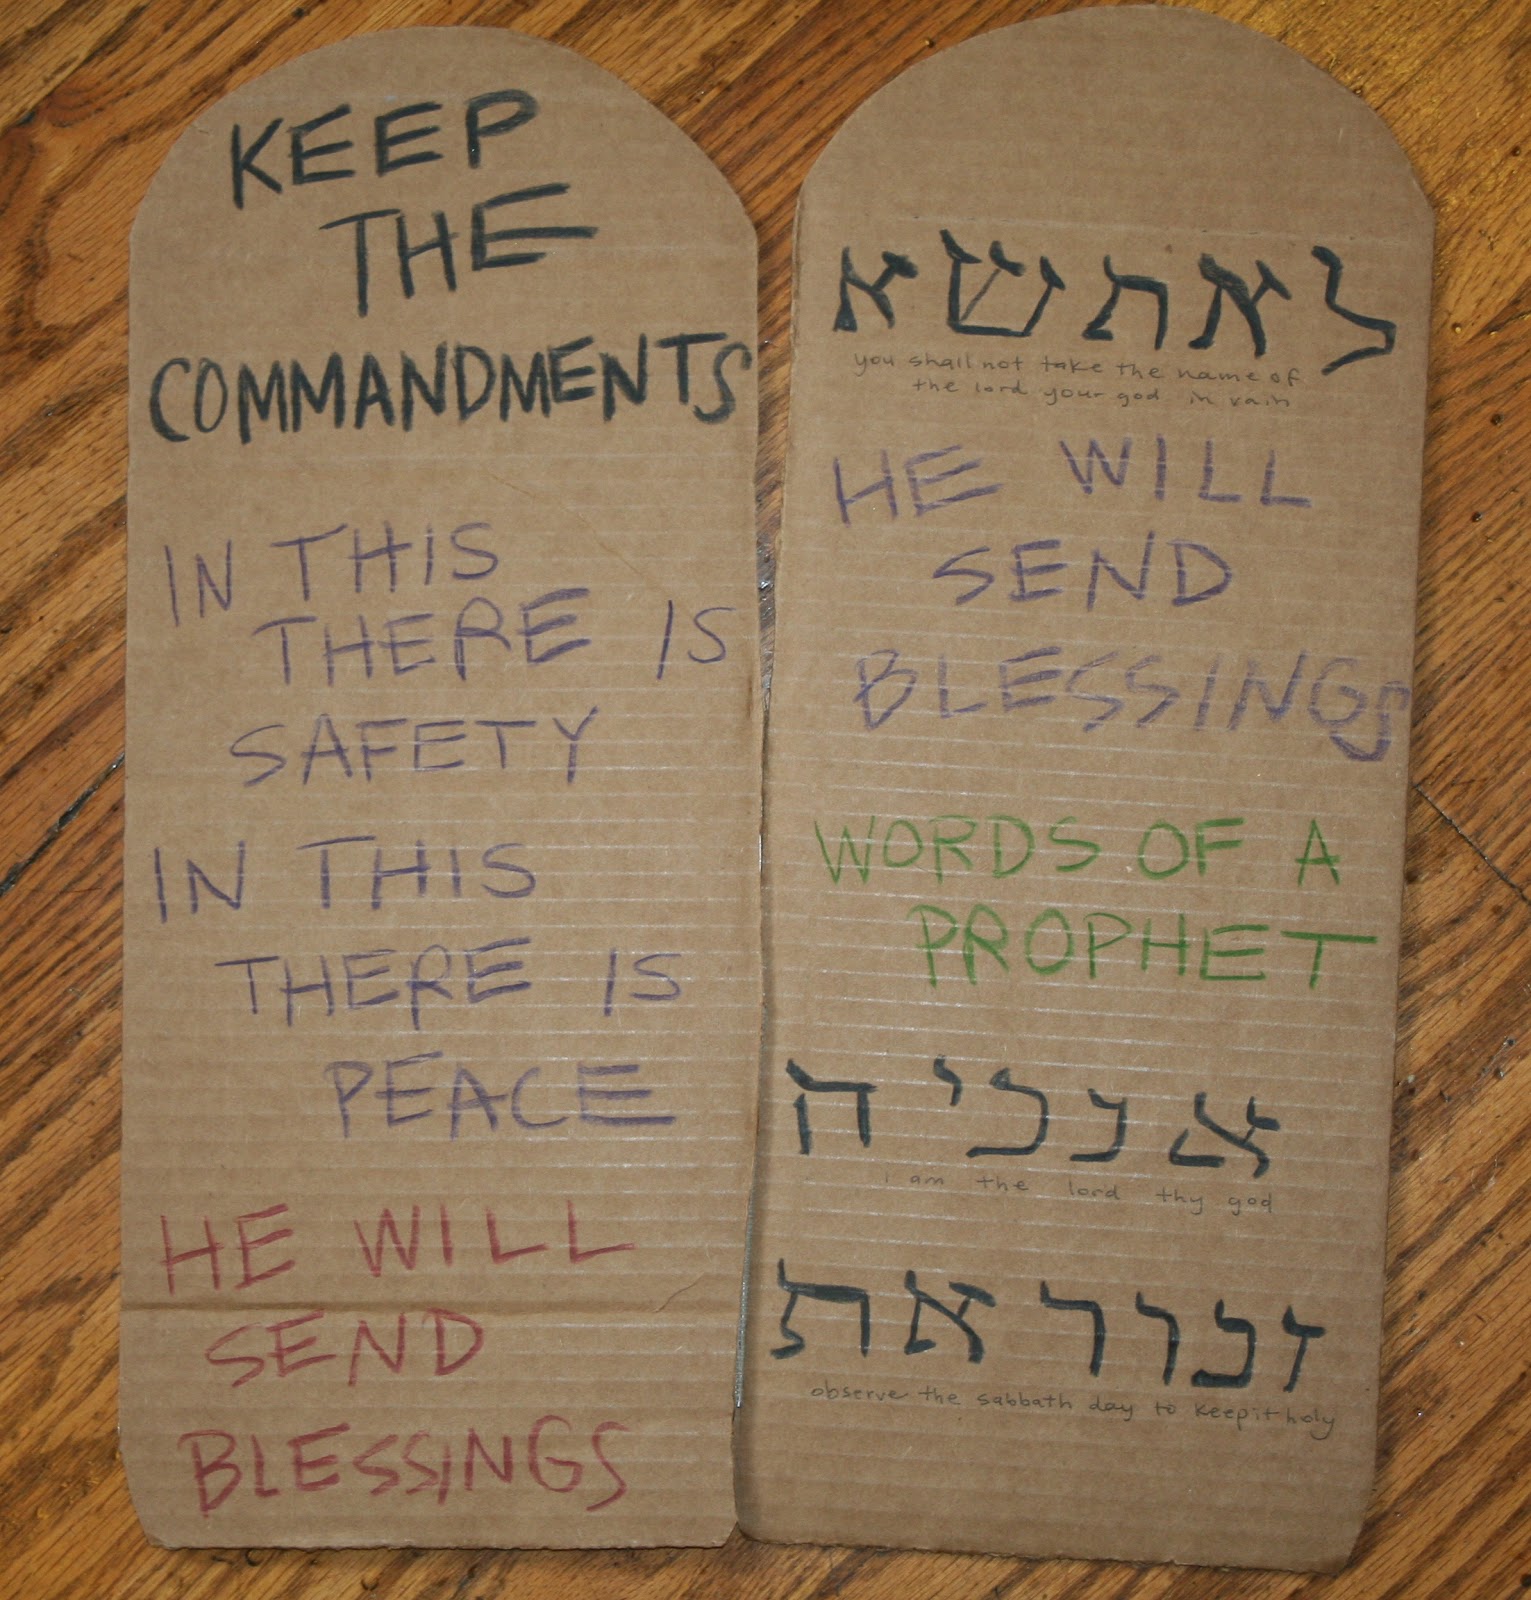 KEEP
THE
COMMANDMENTS
IN THIS
THERE IS
SAFETY
IN THIS
THERE IS
PEACE
HE WILL
SEND
BLESSINGS
לא תשא
you shall not take the name of
the lord your god in vain
HE WILL
SEND
BLESSINGS
WORDS OF A
PROPHET
אנכי ה
i am the lord thy god
זכור את
observe the sabbath day to keep it holy